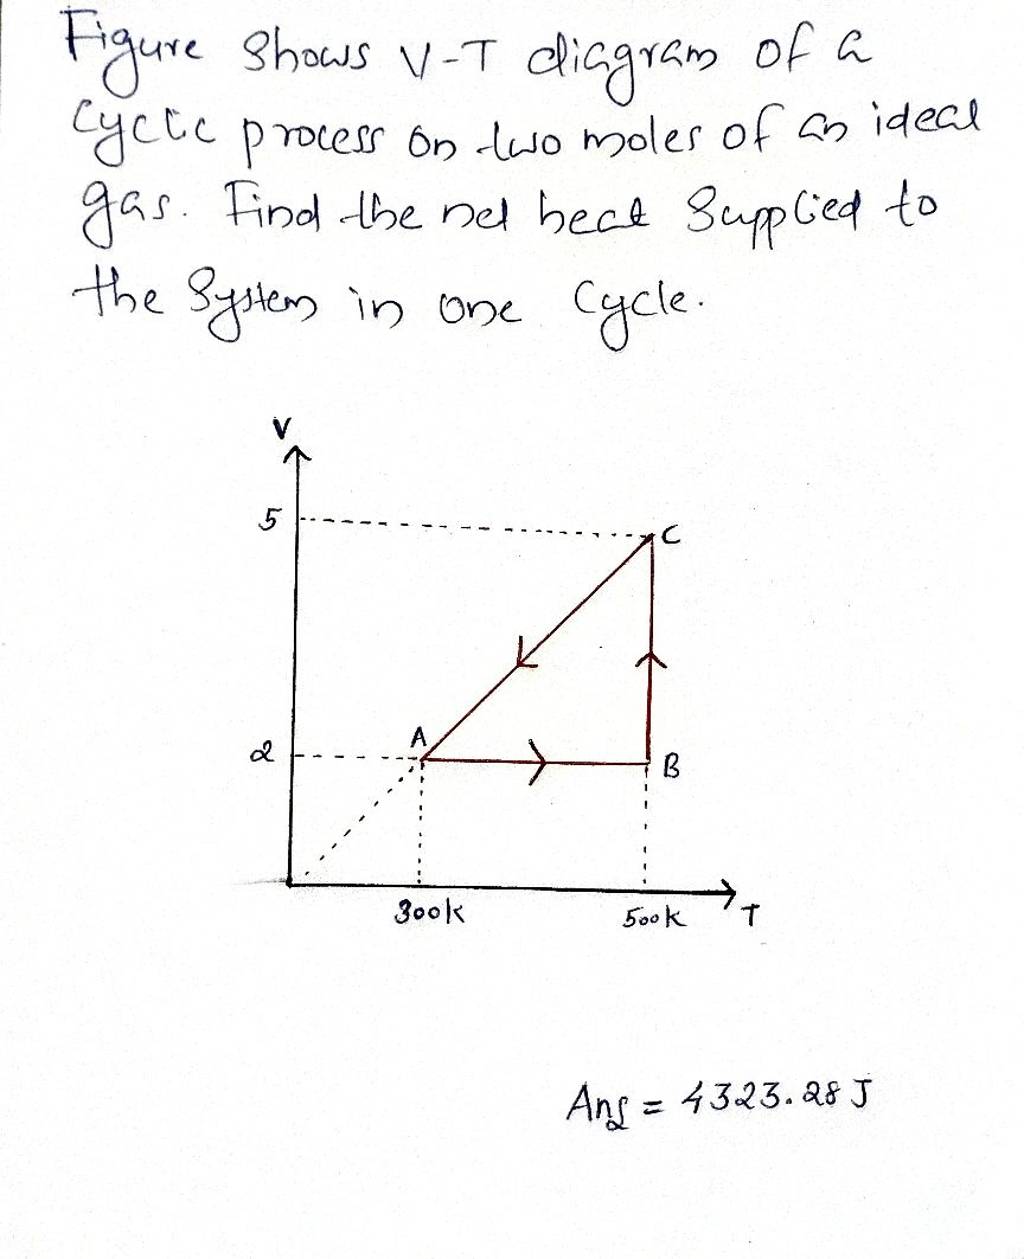 Figure shows V-T diagram of a
cyclic process on two moles of an ideal
gas. Find the net heat supplied to
the system in one cycle.
V
5
C
A
2
B
300k
500k
T
Ans = 4323.28 J